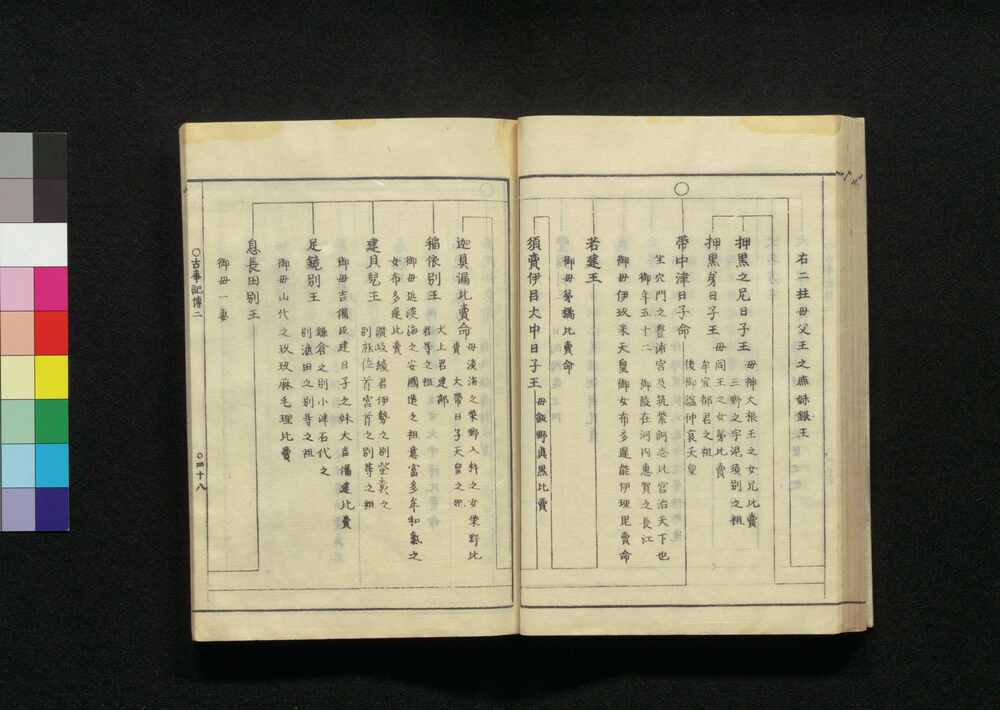 右二柱母父王之庶妹銀王
押黒之兄日子王
母神大根王之女兄比賣
三野之宇泥須別之祖
押黒弟日子王
母同王之女弟比賣
牟宜都君之祖
帯中津日子命
後御謚仲哀天皇
坐穴門之豊浦宮及筑紫訶志比宮治天下也
御年五十二
御陵在河内恵賀之長江
御母伊玖米天皇御女布多遅能伊理毘賣命
若建王
御母弟橘比賣命
須賣伊呂大中日子王
母飯野真黒比賣
迦具漏比賣命
母淡海之柴野入杵之女柴野比
賣
大帯日子天皇之妃
稲依別王
犬上君建部
君等之祖
御母近淡海之安國造之祖意富多牟和氣之
女布多遅比賣
建貝兒王
讃岐綾君伊勢之別登袁之
別麻佐首宮首之別等之祖
御母吉備臣建日子之妹大吉備建比賣
足鏡別王
鎌倉之別小津石代之
別漁田之別等之祖
御母山代之玖玖麻毛理比賣
息長田別王
御母一妻
○古事記傳二
○四十八